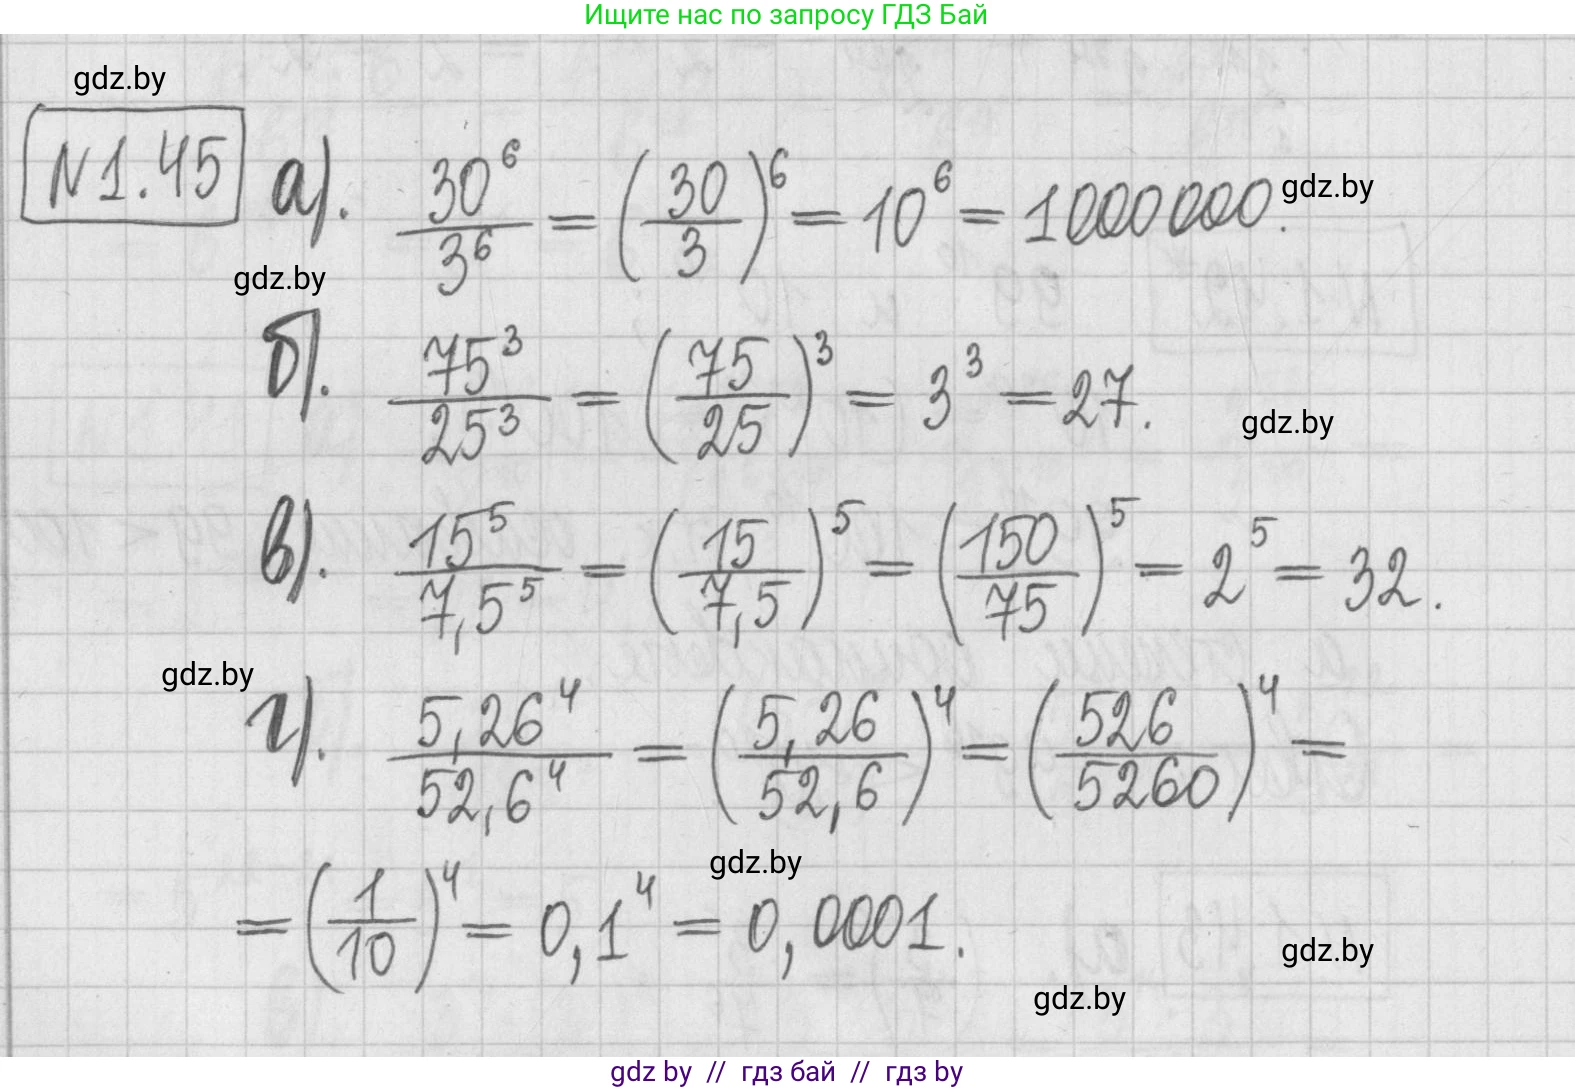 Ищите нас по запросу ГДЗ Бай
gdz.by
N1.45 а). 30⁶/3⁶ = (30/3)⁶ = 10⁶ = 1000000. gdz.by
gdz.by
б). 75³/25³ = (75/25)³ = 3³ = 27.
gdz.by
в). 15⁵/7,5⁵ = (15/7,5)⁵ = (150/75)⁵ = 2⁵ = 32.
gdz.by
г). 5,26⁴/52,6⁴ = (5,26/52,6)⁴ = (526/5260)⁴ =
gdz.by
= (1/10)⁴ = 0,1⁴ = 0,0001.
gdz.by
gdz.by
gdz by // гдз бай // гдз by